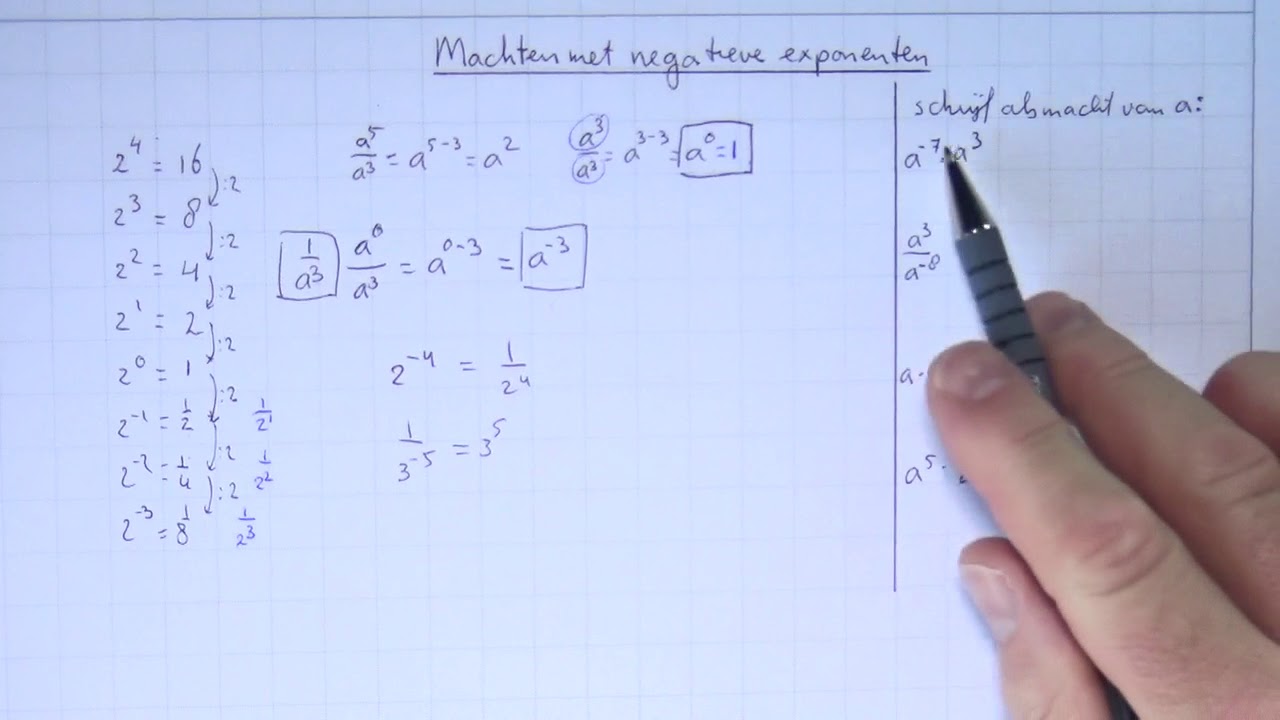 Machten met negatieve exponenten
2^4 = 16
2^3 = 8
2^2 = 4
2^1 = 2
2^0 = 1
2^-1 = 1/2 1/2^1
2^-2 = 1/4 1/2^2
2^-3 = 1/8 1/2^3
:2
:2
:2
:2
:2
:2
:2
a^5/a^3 = a^5-3 = a^2
a^3/a^3 = a^3-3 = a^0 = 1
1/a^3 a^0/a^3 = a^0-3 = a^-3
2^-4 = 1/2^4
1/3^-5 = 3^5
schrijf als macht van a:
a^-7 · a^3
a^3/a^-8
a ·
a^5 ·